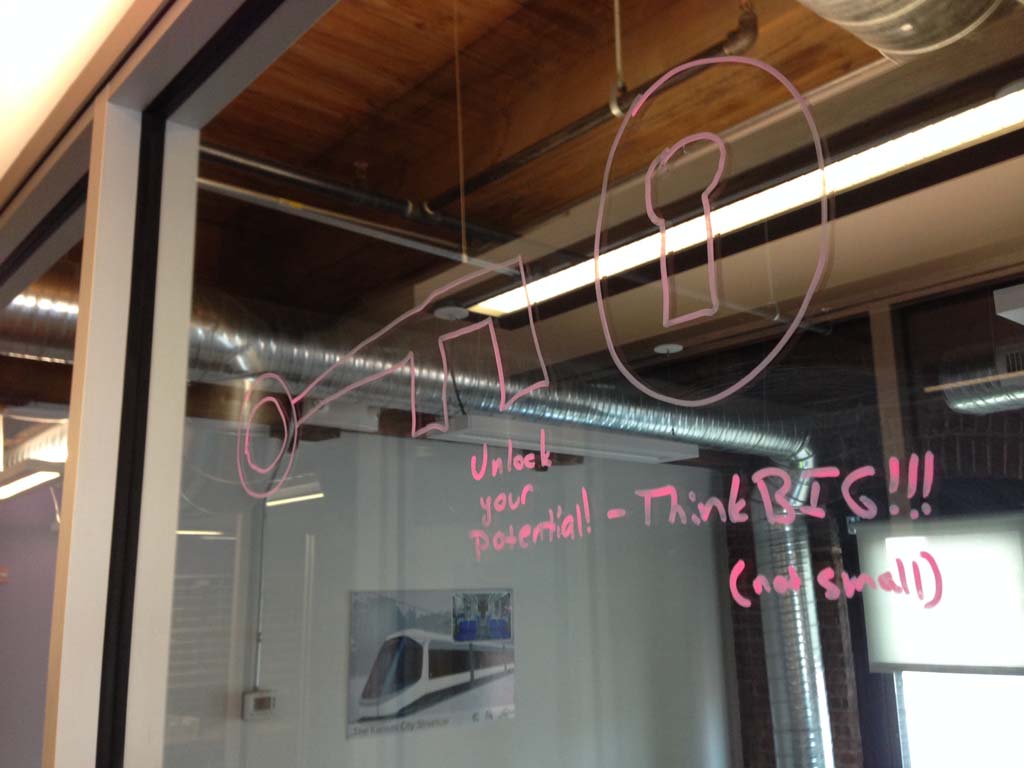 Unlock
your
potential! - Think BIG!!!
(not small)
The Kansas City Streetcar